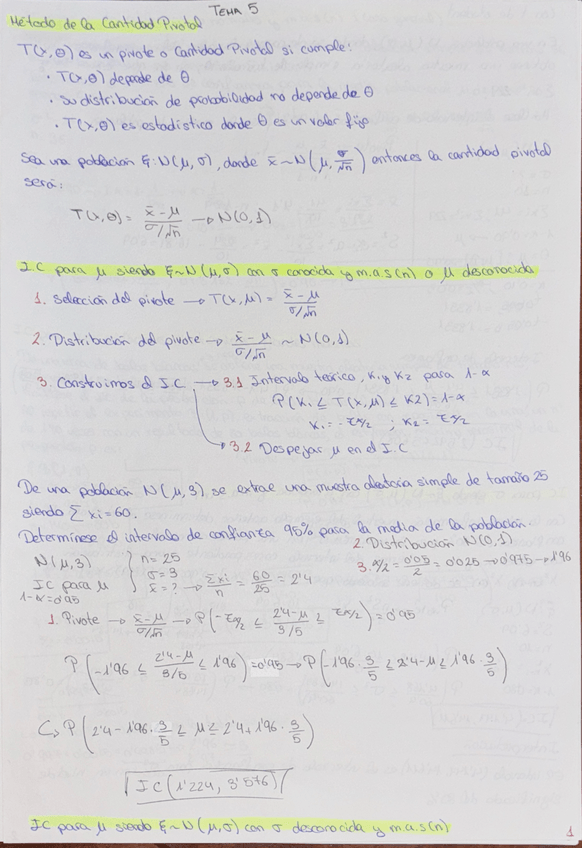 Tema 5
Método de la Cantidad Pivotal
T(x,θ) es un pivote o Cantidad Pivotal si cumple:
· T(x,θ) depende de θ
· Su distribución de probabilidad no depende de θ
· T(x,θ) es estadístico donde θ es un valor fijo
Sea una población ξ: N(μ,σ), donde x̄ ~ N(μ, σ/√n) entonces la cantidad pivotal
será:
T(x,θ) = (x̄ - μ)/(σ/√n) → N(0,1)
I.C para μ siendo ξ ~ N(μ,σ) con σ conocida y m.a.s(n) o μ desconocida
1. Selección del pivote → T(x,μ) = (x̄ - μ)/(σ/√n)
2. Distribución del pivote → (x̄ - μ)/(σ/√n) ~ N(0,1)
3. Construimos el I.C → 3.1 Intervalo teórico, K₁ y K₂ para 1-α
P(K₁ ≤ T(x,μ) ≤ K2) = 1-α
K₁ = -z α/2 ; K₂ = z α/2
→ 3.2 Despejar μ en el I.C
De una población N(μ,3) se extrae una muestra aleatoria simple de tamaño 25
siendo Σxi = 60.
Determínese el intervalo de confianza 95% para la media de la población.
2. Distribución N(0,1)
N(μ,3) } n = 25
IC para μ } σ = 3
1-α = 0'95 } x̄ = ? → Σxi/n = 60/25 = 2'4
3. α/2 = 0'05/2 = 0'025 → 0'975 → 1'96
1. Pivote → (x̄ - μ)/(σ/√n) → P(-z α/2 ≤ (2'4 - μ)/(3/5) ≥ z α/2) = 0'95
P(-1'96 ≤ (2'4 - μ)/(3/5) ≤ 1'96) = 0'95 → P(1'96 · 3/5 ≤ 2'4 - μ ≤ 1'96 · 3/5)
↳ P(2'4 - 1'96 · 3/5 ≤ μ ≤ 2'4 + 1'96 · 3/5)
IC (1'224, 3'576)
IC para μ siendo ξ ~ N(μ,σ) con σ desconocida y m.a.s(n)
1